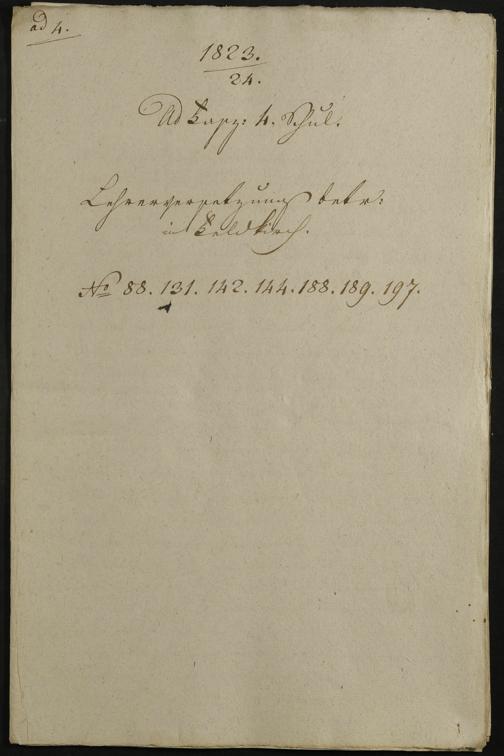 ad 4.
1823.
24.
Ad Fasz: 4. Schul.
Lehrerversetzung betr:
in Feldkirch.
No 88. 131. 142. 144. 188. 189. 197.